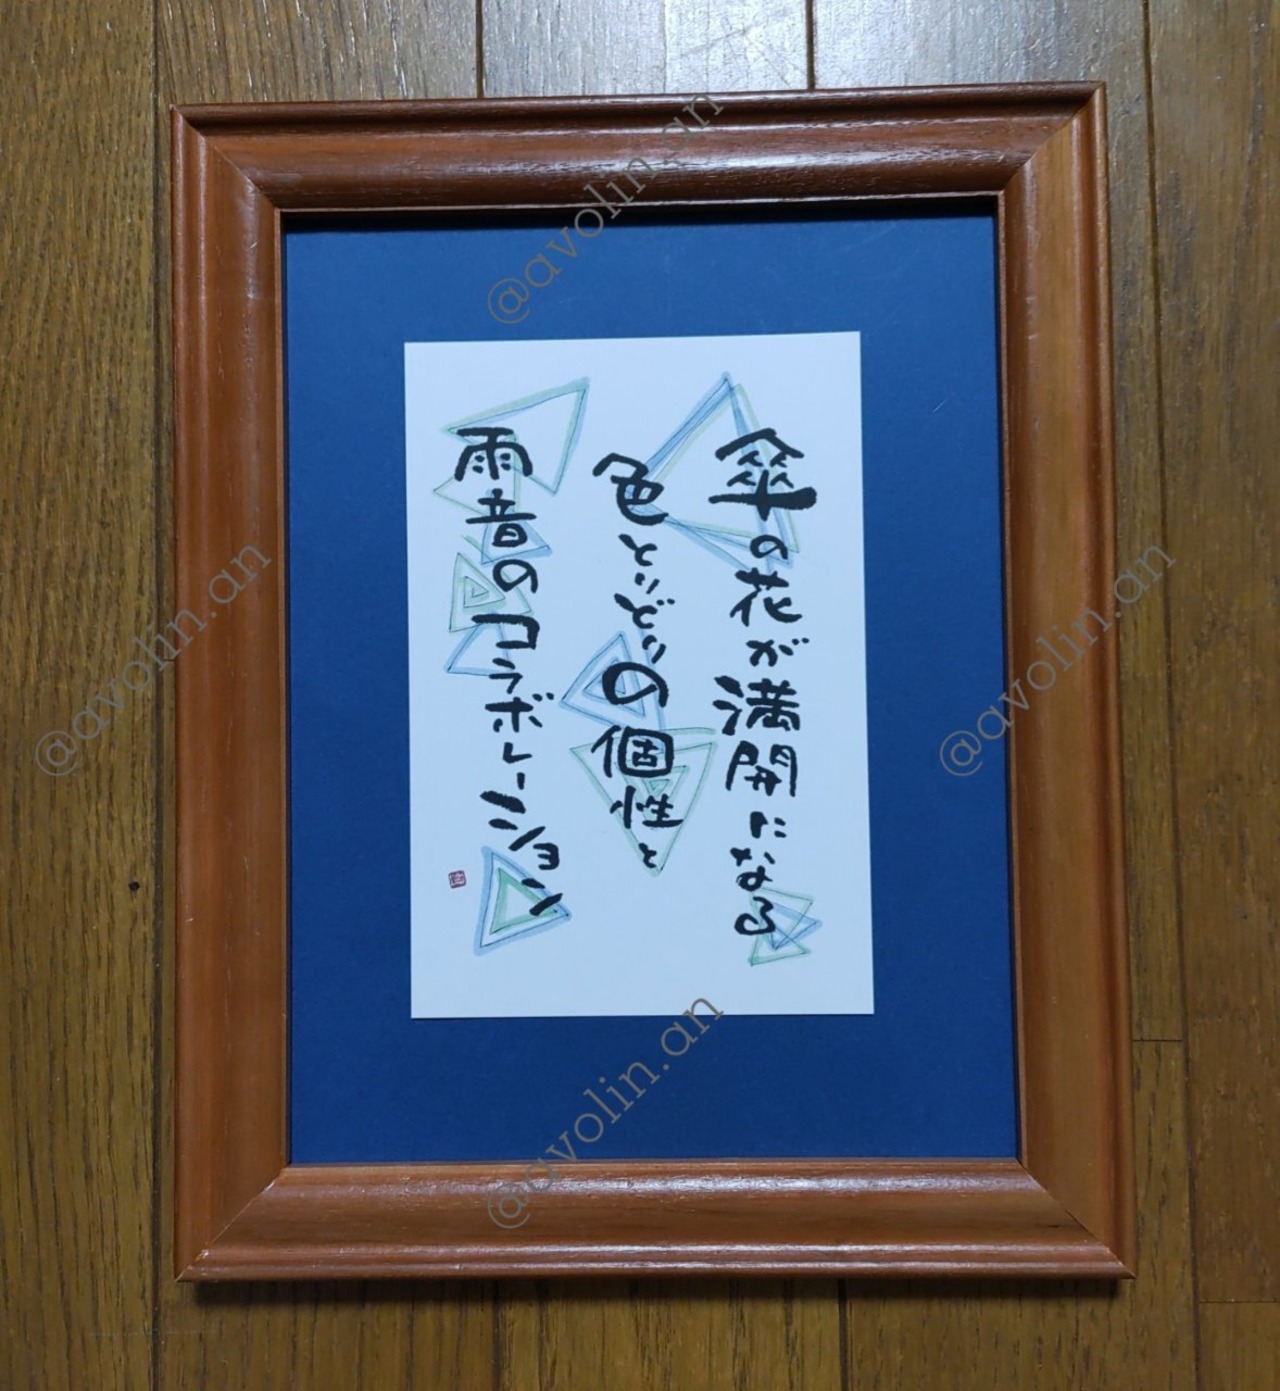 傘の花が満開になる
色とりどりの個性と
雨音のコラボレーション
@avolin.an
@avolin.an
@avolin.an
@avolin.an